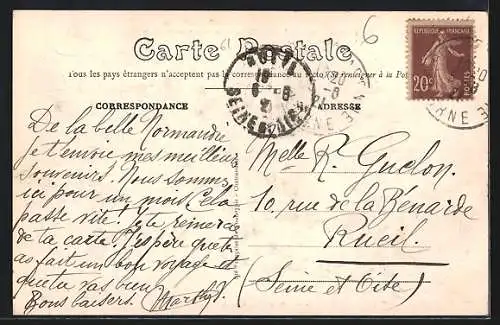 Carte Postale
Tous les pays étrangers n'acceptent pas la correspondance au recto (Se renseigner à la Poste)
CORRESPONDANCE
ADRESSE
De la belle Normandie
je t'envoie mes meilleurs
souvenirs. Nous sommes
ici pour un mois. Cela
passe vite! Je te remercie
de ta carte. J'espère que tu
as fait un bon voyage et
que tu vas bien.
Bons baisers.
Melle R. Guelon.
10, rue de la Bénarde
Rueil.
(Seine et Oise)
RÉPUBLIQUE FRANÇAISE
20c
POSTES
RUEIL
SEINE
6